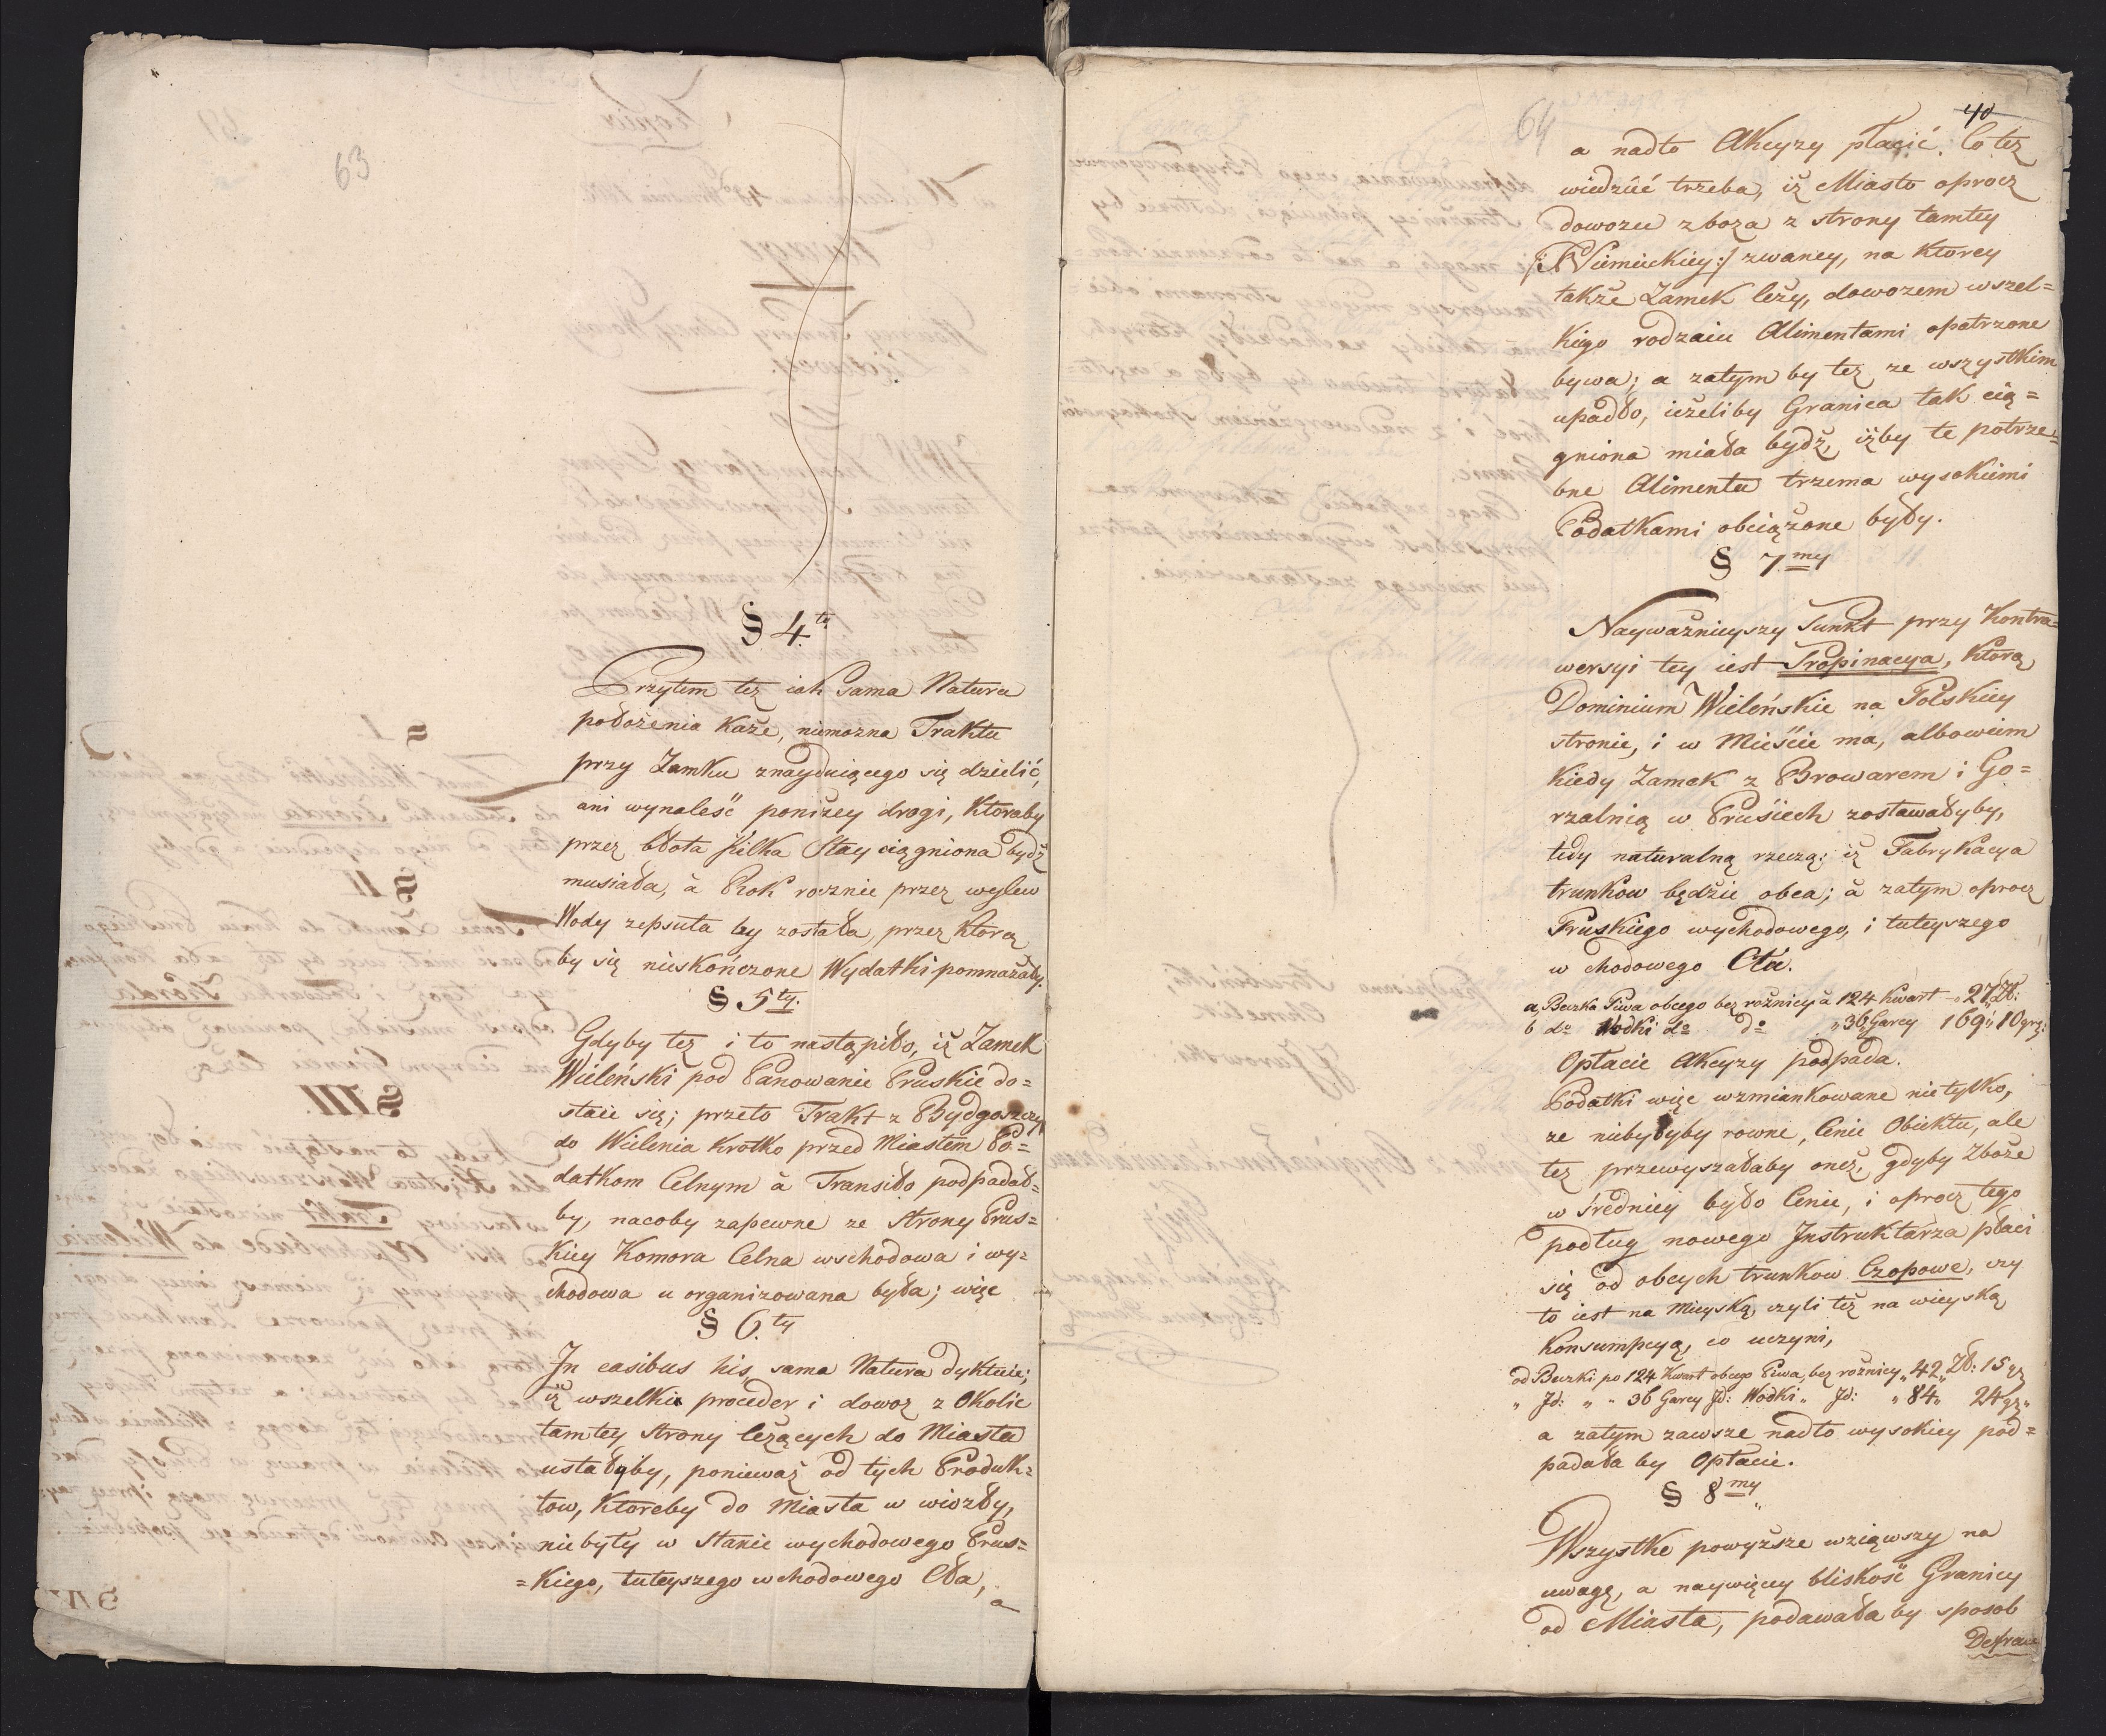 63
§ 4.to
Przytem też iak Sama Natura
położenia Każe, niemożna Traktu
przy Zamku znayduiącego się dzielić,
ani wynaleść poniżey drogi, Ktoraby
przez błota kilka Stay ciągniona bydź
musiała, à Rok rocznie przez wylew
Wody zepsuta by została, przez Ktorą
by się nieskończone Wydatki pomnażały.
§ 5.ty
Gdyby też i to nastąpiło, iż Zamek
Wieleński pod Panowanie Pruskie do=
staie się; przeto Trakt z Bydgoszczy
do Wielenia krotko przed Miastem Po=
datkom Celnym à Transito podpadał=
by, nacoby zapewne ze Strony Prus=
kiey Komora Celna wschodowa i wy=
chodowa u organizowana była; więc
§ 6.ty
In casibus his, sama Natura dyktuie;
iż wszelkie proceder i dowoz z Okolic
tamtey Strony leżących do Miasta
ustałyby, ponieważ od tych Produk=
tow, Ktoreby do Miasta w wiozły,
niebyły w Stanie wychodowego Prus=
=kiego, tuteyszego wchodowego Cła,
a
64
40
a nadto Akcyzy płacić. Co też
wiedzieć trzeba, iż Miasto oprocz
dowozu zboza z strony tamtey
/:Niemieckiey:/ zwaney, na Ktorey
także Zamek leży, dowozem wszel=
kiego rodzaiu Alimentami opatrzone
bywa; a zatym by też ze wszystkim
upadło, ieżeliby Granica tak cią=
gniona miała bydź, iżby te potrze=
bne Alimenta trzema wysokiemi
Podatkami obciążone były.
§ 7.my
Nayważnieyszy Punkt przy Kontra=
wersyi tey iest Propinacya, Ktorą
Dominium Wieleńskie na Polskiey
stronie, i w Mieście ma, albowiem
Kiedy Zamek z Browarem i Go=
rzalnią w Prusiech zostawałyby,
tedy naturalną rzeczą: iż Fabrykacya
trunkow będzie obca; à zatym oprocz
Pruskiego wychodowego, i tuteyszego
w chodowego Cła.
a, Beczka Piwa obcego bez rożnicy à 124 Kwart „ 27 Zł:
b do Wodki do do „ 36 Garcy 169„ 10 grz:
Opłacie Akcyzy podpada.
Podatki więc wzmiankowane nie tylko,
ze niebyłyby rowne, Cenie Obiektu, ale
też przewyszałaby oneż, gdyby Zboże
w Średniey było Cenie, i oprocz tego
podług nowego Instruktarza płaci
się od obcych trunkow Czopowe, czy
to iest na Mieyską, czyli też na wieyską
Konsumpcyą, co uczyni,
od Beczki po 124 Kwart obcego Piwa, bez rożnicy „ 42„ Zł: 15 gz
„ Id: „ „ 36 Garcy Id: Wodki „ Id: „ 84„ 24 gz„
a zatym zawsze nadto wysokiey pod=
padała by Opłacie.
§ 8.my
Wszystke powyższe wziąwszy na
uwagę, a naywięcy bliskość Granicy
od Miasta, podawała by sposob
Defrau